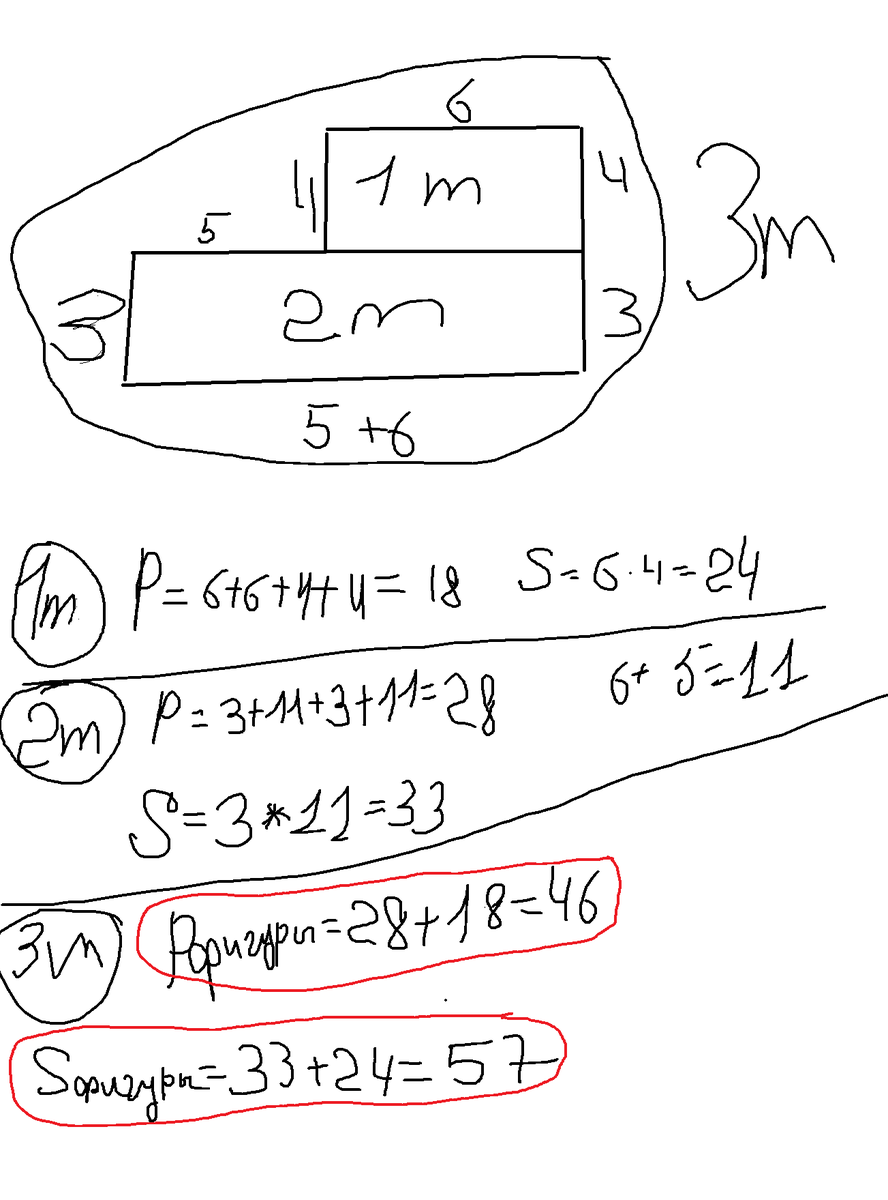 6
4 1m 4 3m
5
3 2m 3
5+6
1m P=6+6+4+4=18 S=6·4=24
6+5=11
2m P=3+11+3+11=28
S=3*11=33
3m Pфигуры=28+18=46
Sфигуры=33+24=57